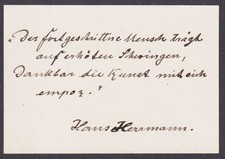 „Der fortgeschrittne Mensch trägt
auf erhöten Schwingen,
Dankbar die Kunst mit sich
empor.“
Hans Herrmann.